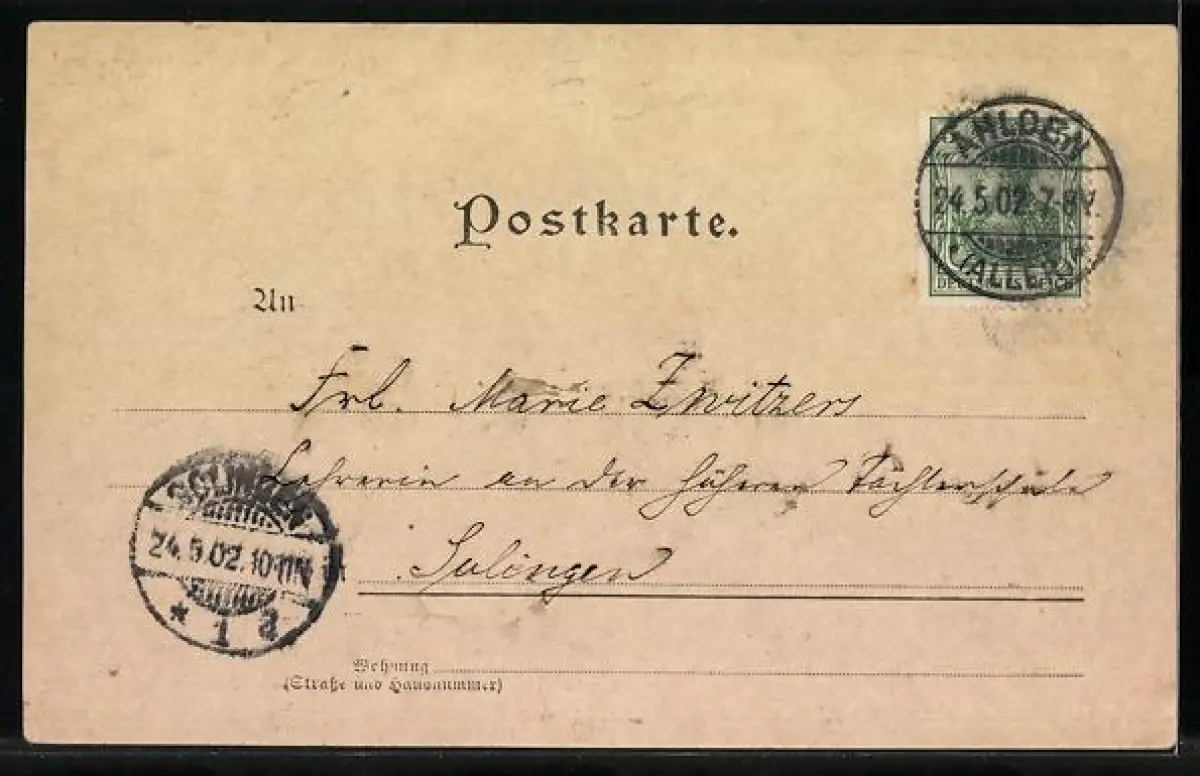 AHLDEN
24.5.02.7-8V.
*(ALLER)*
Postkarte.
An
Frl. Marie Zwitzers
Lehrerin an der höheren Töchterschule
SOLINGEN
24.5.02.10-11N
* 1 a
Solingen
Wohnung
(Straße und Hausnummer)